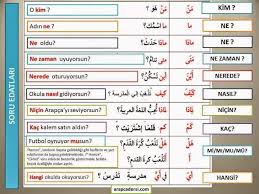 SORU EDATLARI
O kim ? مَنْ هُوَ ؟ مَنْ KİM ?
Adın ne ? مَا اسْمُكَ ؟ مَا NE ?
Ne oldu? مَاذَا حَدَثَ؟ مَاذَا NE ?
Ne zaman uyuyorsun? مَتَى تَنَامُ؟ مَتَى NE ZAMAN ?
Nerede oturuyorsun? أَيْنَ تَسْكُنُ؟ أَيْنَ NEREDE?
Niçin Arapça'yı seviyorsun? لِمَاذَا تُحِبُّ اللُّغَةَ الْعَرَبِيَّةَ؟ لِمَاذَا NİÇİN?
Kaç kalem satın aldın? كَمْ KAÇ?
Okula nasıl gidiyorsun? كَيْفَ NASIL?
Futbol oynuyor musun? هَلْ Mİ/MU/MÜ/MI?
Hangi okulda okuyorsun? فِي أَيِّ مَدْرَسَةٍ تَدْرُسُ ؟ أَيُّ HANGİ?
arapcadersi.com